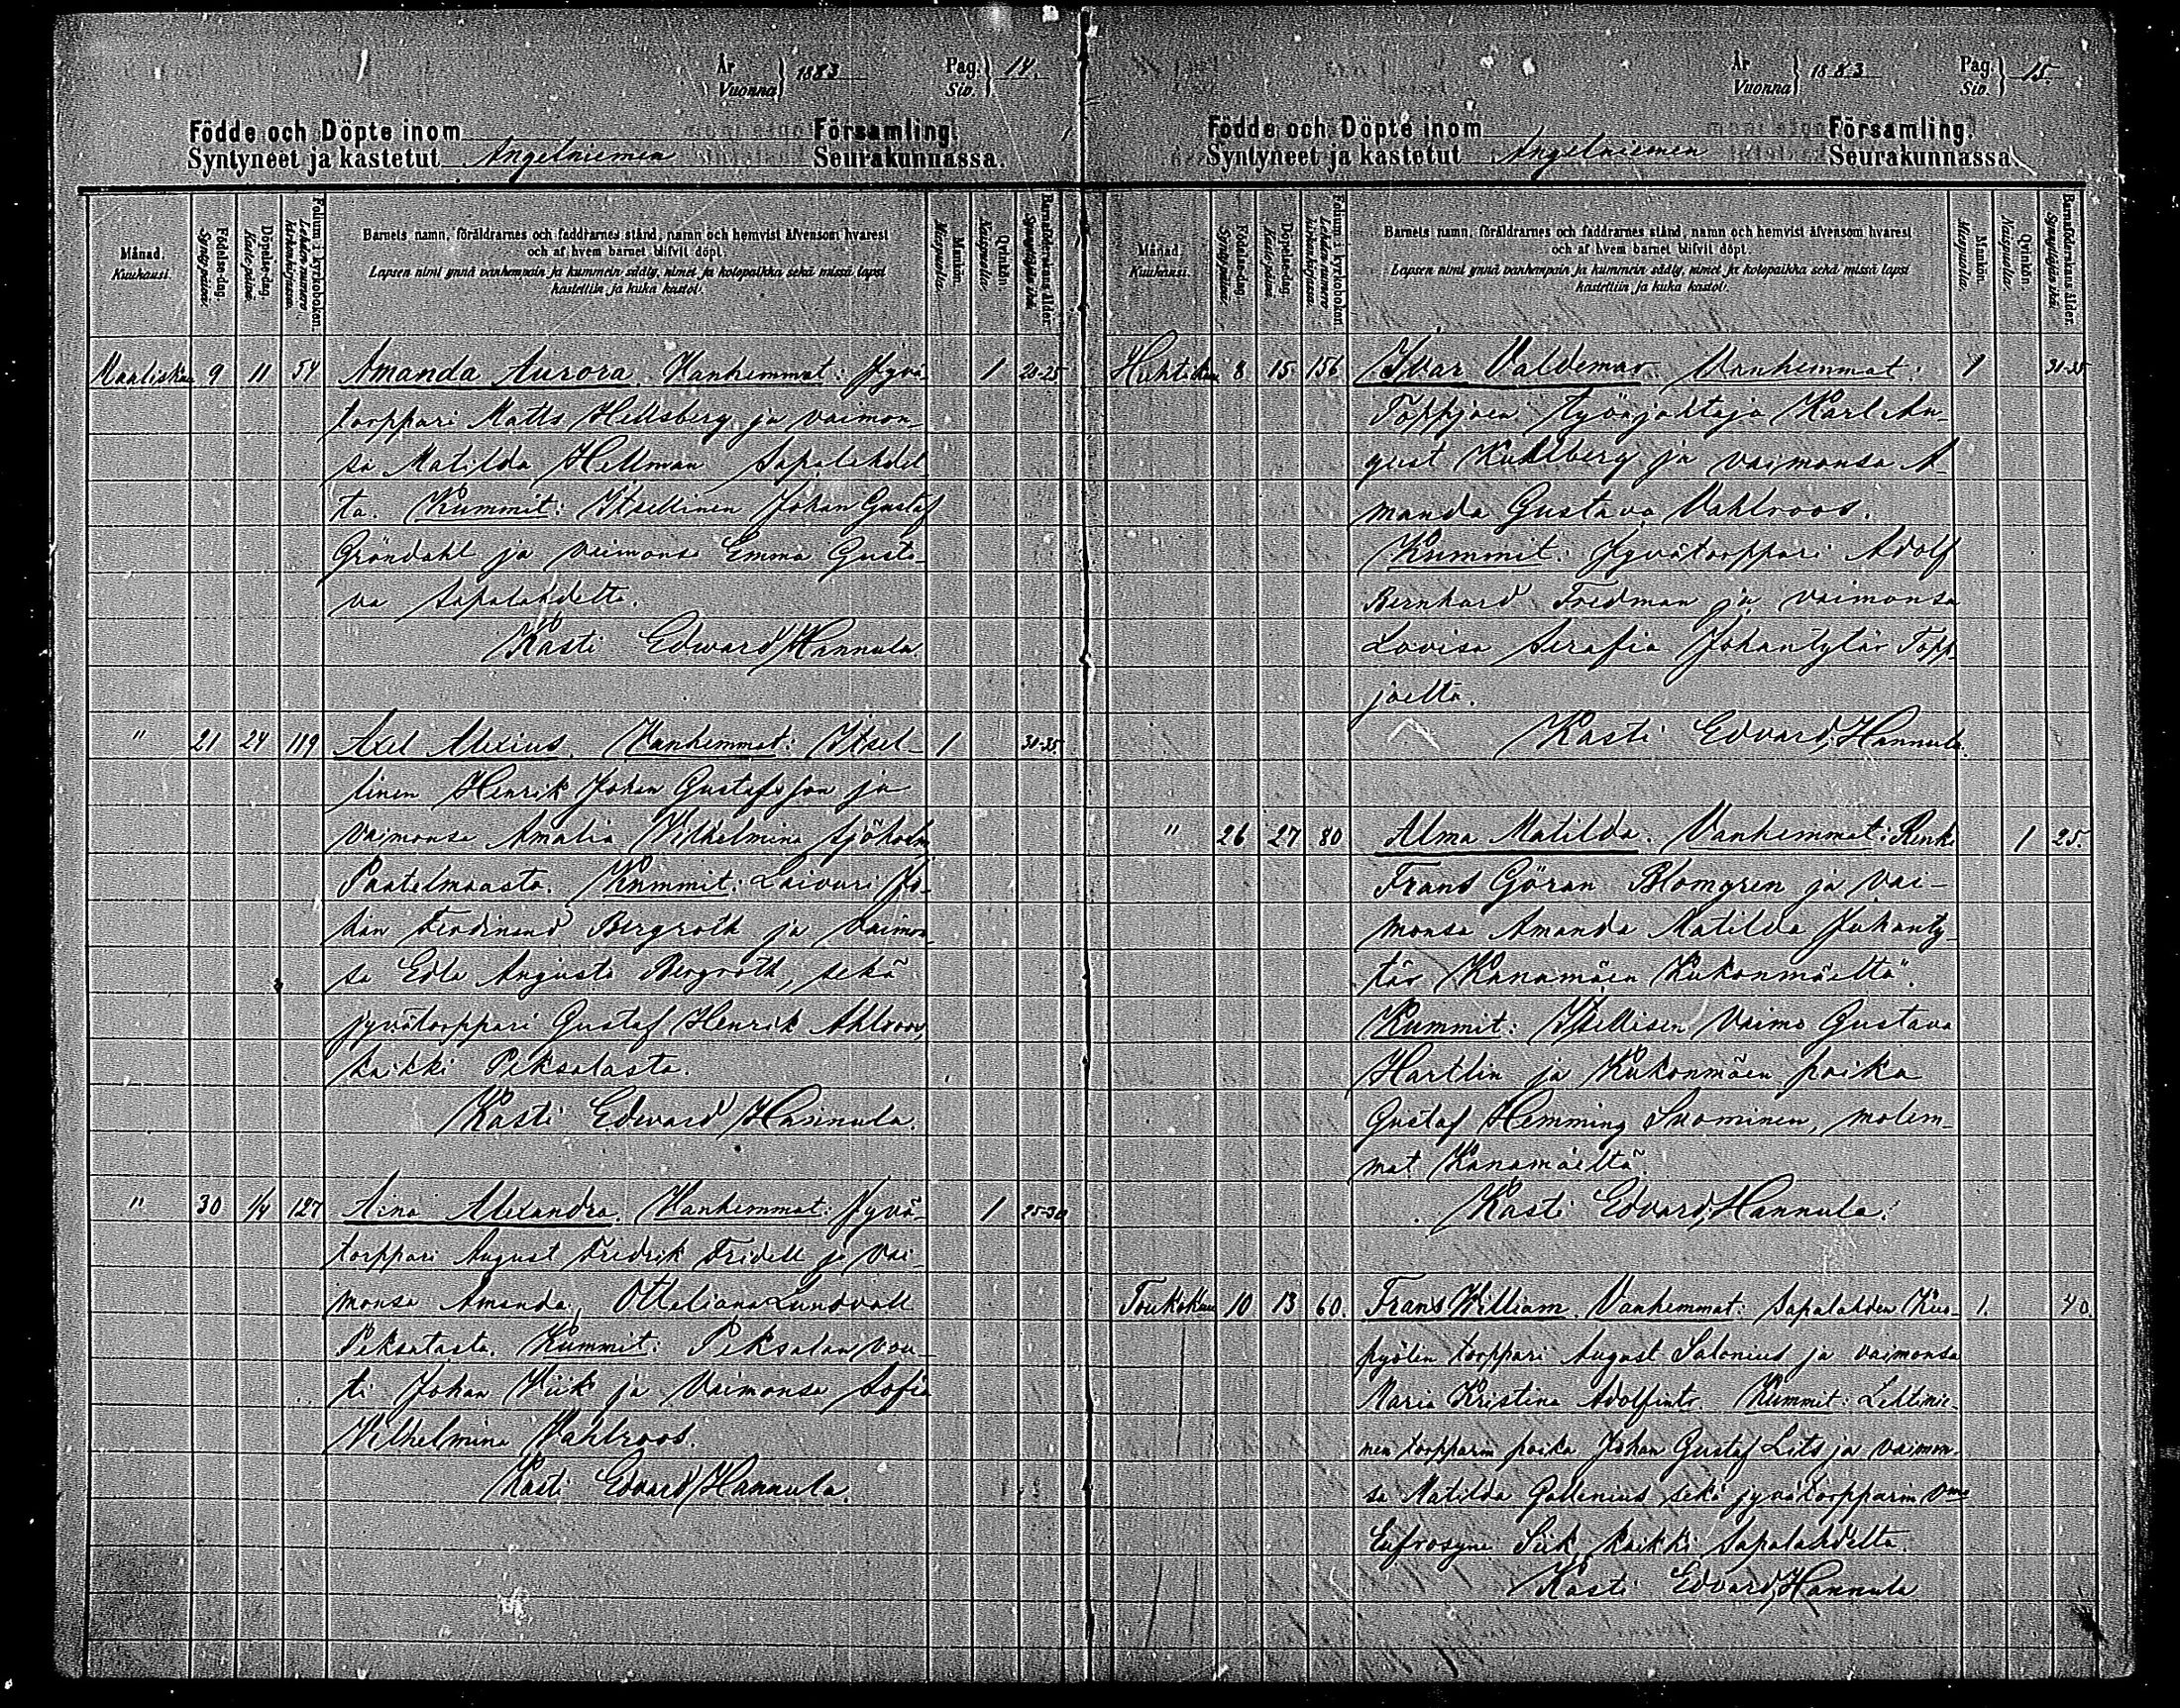 År Vuonna } 1883 Pag. Siv. } 14.
Födde och Döpte inom Församling.
Syntyneet ja kastetut Angelniemen Seurakunnassa.
Månad. Kuukausi.
Födelse-dag. Syntypäivä.
Döpelse-dag. Kaste-päivä.
Folium i kyrkoboken. Lehden numero kirkonkirjassa.
Barnets namn, föräldrarnes och faddrarnes stånd, namn och hemvist äfvensom hvarest
och af hvem barnet blifvit döpt.
Lapsen nimi ynnä vanhempain ja kummein sääty, nimet ja kotopaikka sekä missä lapsi
kastettiin ja kuka kastoi.
Mankön. Miespuolia.
Qvinkön. Naispuolia.
Barnaföderskans ålder. Synnyttäjän ikä.
Maalisku 9 11 54 Amanda Aurora. Vanhemmat: Jyvä- 1 20-25
torppari Matts Hellsberg ja vaimon-
sa Matilda Hellman Sapalahdel-
ta. Kummit: Itsellinen Johan Gustaf
Gröndahl ja vaimonsa Emma Gusta-
va Sapalahdelta.
Kasti Edward Hannula.
" 21 24 119 Axel Alexius. Vanhemmat: Itsel- 1 30-35
linen Henrik Johan Gustafsson ja
vaimonsa Amalia Wilhelmina Sjöholm
Paatelmaasta. Kummit: Laivuri Jo-
han Ferdinand Bergroth ja vaimon-
sa Edla Augusta Bergroth, sekä
jyvätorppari Gustaf Henrik Ahlroos,
kaikki Peksalasta.
Kasti Edward Hannula.
" 30 1/4 127 Aina Alexandra. Vanhemmat: Jyvä- 1 25-30
torppari August Fredrik Fridell ja vai-
monsa Amanda, Ottiliana Lundvall
Peksalasta. Kummit: Peksalan vou-
ti Johan Wiik ja vaimonsa Sofia
Wilhelmina Vahlroos.
Kasti Edvard Hannula.
År Vuonna } 1883 Pag. Siv. } 15.
Födde och Döpte inom Församling.
Syntyneet ja kastetut Angelniemen Seurakunnassa.
Månad. Kuukausi.
Födelse-dag. Syntypäivä.
Döpelse-dag. Kaste-päivä.
Folium i kyrkoboken. Lehden numero kirkonkirjassa.
Barnets namn, föräldrarnes och faddrarnes stånd, namn och hemvist äfvensom hvarest
och af hvem barnet blifvit döpt.
Lapsen nimi ynnä vanhempain ja kummein sääty, nimet ja kotopaikka sekä missä lapsi
kastettiin ja kuka kastoi.
Mankön. Miespuolia.
Qvinkön. Naispuolia.
Barnaföderskans ålder. Synnyttäjän ikä.
Huhtikuu 8 15 156 Ivar Valdemar. Vanhemmat: 1 30-35
Toppjoen työnjohtaja Karl Au-
gust Kuhlberg ja vaimonsa A-
manda Gustava Vahlroos.
Kummit: Jyvätorppari Adolf
Bernhard Fredman ja vaimonsa
Lovisa Serafia Johantytär Topp-
joelta.
Kasti Edvard Hannula.
" 26 27 80 Alma Matilda. Vanhemmat: Renki 1 25.
Frans Göran Blomgren ja vai-
monsa Amanda Matilda Juhanty-
tär Kanamäen Kukonmäeltä.
Kummit: Itsellisen vaimo Gustava
Hartlin ja Kukonmäen poika
Gustaf Hemming Suominen, molem-
mat Kanamäeltä.
Kasti Edvard Hannula.
Toukokuu 10 13 60. Frans William. Vanhemmat: Sapalahden Kuo- 1. 40.
pyölin torppari August Salonius ja vaimonsa
Maria Kristina Adolfintr. Kummit: Lehtinie-
men torpparin poika Johan Gustaf Lits ja vaimon-
sa Matilda Gallenius sekä jyvätorpparin vmo
Eufrosyne Siik kaikki Sapalahdelta.
Kasti Edvard Hannula